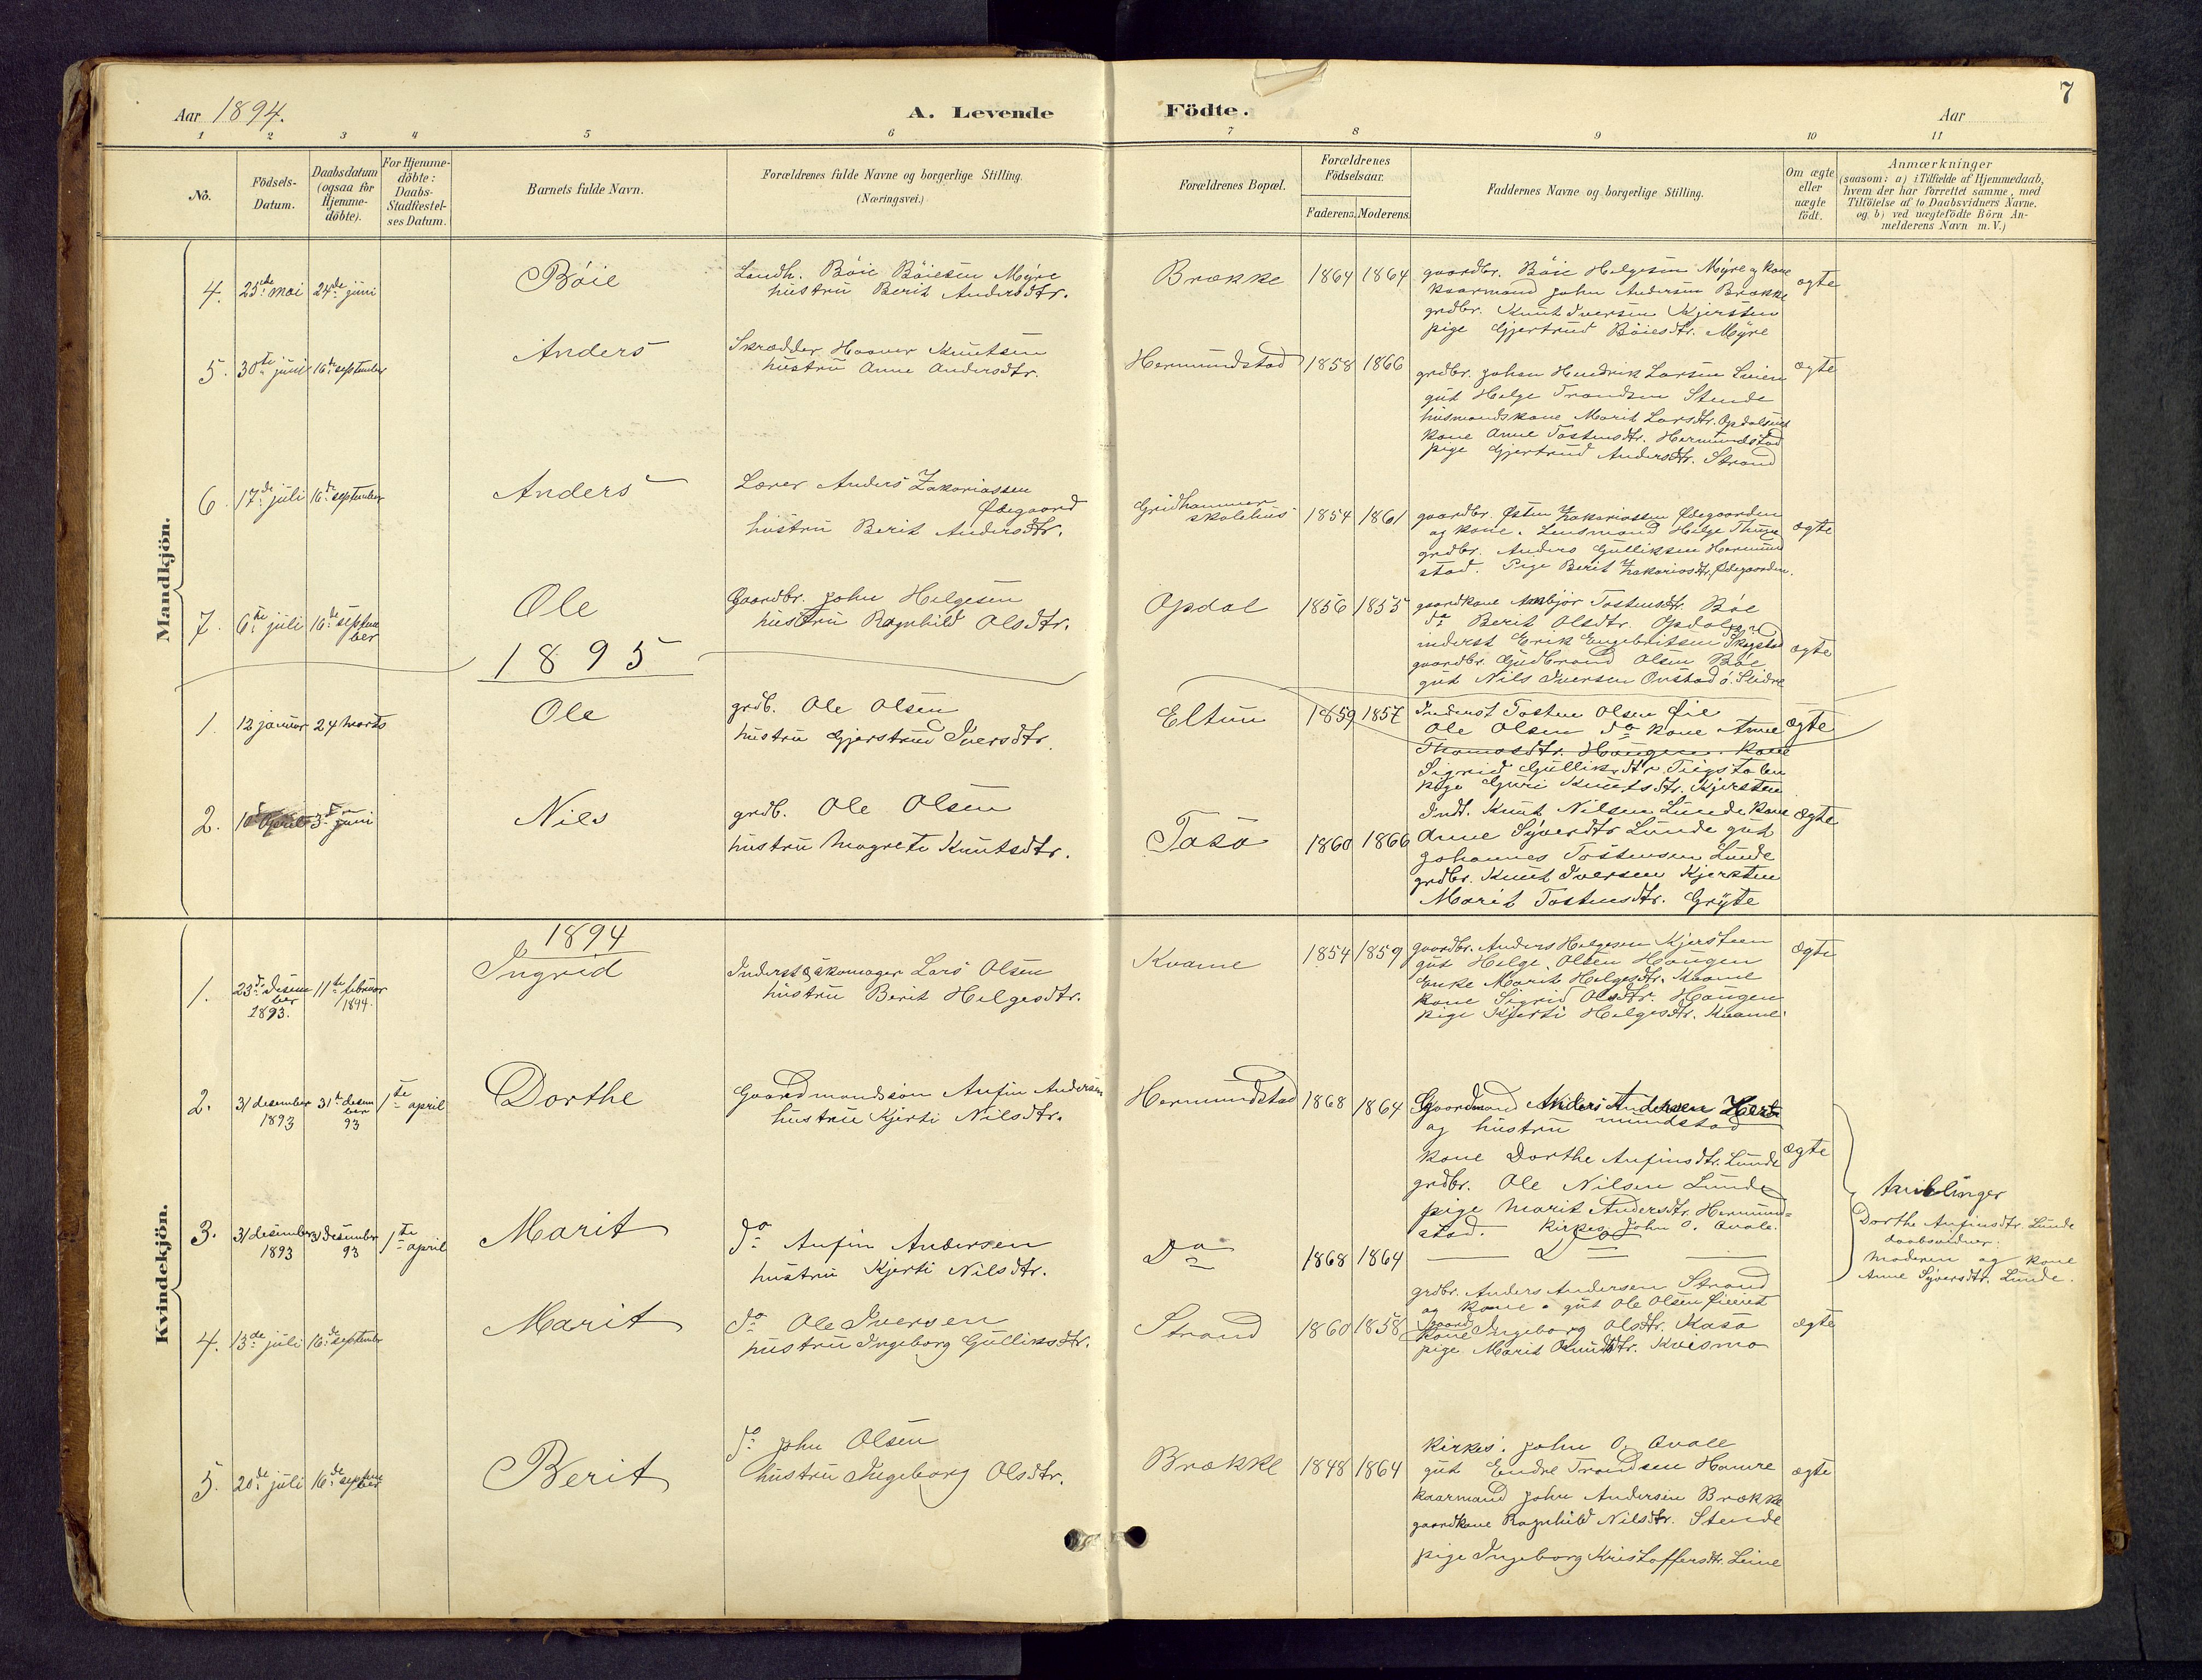 Aar 1894.
A. Levende Födte.
Aar
7
1 2 3 4 5 6 7 8 9 10 11
No.
Födsels-Datum.
Daabsdatum (ogsaa for Hjemme-döbte).
For Hjemme-döbte: Daabs-Stadfestel-ses Datum.
Barnets fulde Navn.
Forældrenes fulde Navne og borgerlige Stilling.
(Næringsvei.)
Forældrenes Bopæl.
Forældrenes Födselsaar.
Faderens. Moderens.
Faddernes Navne og borgerlige Stilling.
Om ægte eller uægte födt.
Anmærkninger
(saasom: a) i Tilfælde af Hjemmedaab,
hvem der har forrettet samme, med
Tilföielse af to Daabsvidners Navne.
og b) ved uægtefödte Börn An-
melderens Navn m. V.)
Mandkjön.
4. 25de mai 24de juni
Böie
Landh. Böie Böiesen Myre
hustru Berit Andersdtr.
Brække 1864 1864
gaardbr. Böie Helgesen Myre og kone
kaarmand John Andersen Brække
grdbr. Knut Iversen Kjersten
pige Gjertrud Böiesdtr. Myre
ægte
5. 30te juni 16de september
Anders
Skrædder Haaver Knutsen
hustru Anne Andersdtr.
Hermundstad 1858 1866
grdbr. Johan Hendrik Larsen
gut Helge Trondsen Stende
husmandskone Marit Larsdtr.
kone Anne Tostensdtr. Hermundstad
pige Gjertrud Andersdtr. Strand
ægte
6. 17de juli 16de september
Anders
Lærer Anders Zakariassen
Ødegaard
hustru Berit Andersdtr.
Gridhammer
skolehus 1854 1861
gaardbr. Østen Zakariassen Ødegaarden
og kone. Lensmand Helge Thune
grdbr. Anders Gulliksen Hermund
stad. Pige Berit Zakariasdtr. Ødegaarden.
ægte
7. 6te juli 16de septem
ber
Ole
Gaardbr. John Helgesen
hustru Ragnhild Olsdtr.
Opdal 1856 1855
gaardkone Anbjör Tostensdtr. Böe
do Berit Olsdtr. Opdal
inderst Erik Engebritsen
gaardbr. Gudbrand Olsen Böe
gut Nils Iversen ö. Slidre
ægte
1895
1. 12 januar 24 marts
Ole
grdb. Ole Olsen
hustru Gjertrud Iversdtr.
Eltun 1859 1857
Inderst Tosten Olsen Øie
Ole Olsen do kone Anne
Thomasdtr. Haugen. kone
Sigrid Gulliksdtr.
pige Guri Knutsdtr. Kjersten
ægte
2. 10de April 3de juni
Nils
grdb. Ole Olsen
hustru Magrete Knutsdtr.
1860 1866
Indt. Knut Nilsen Lunde kone
Anne Syverdtr Lunde gut
Johannes Tostensen Lunde
grdbr. Knut Iversen Kjersten
Marit Tostensdtr. Gryte
ægte
Kvindekjön.
1894
1. 23de desem
ber
1893.
11te februar
1894.
Ingrid
Inderst & skomager Lars Olsen
hustru Berit Helgesdtr.
Kvame 1854 1859
gaardbr. Anders Helgesen Kjersteen
gut Helge Olsen Haugen
Enke Marit Helgesdtr. Kvame
kone Sigrid Olsdtr. Haugen
pige Kjersti Helgesdtr. Kvame
ægte
2. 31 desember
1893
31te desem
ber
93
1te april
Dorthe
Gaardmandssön Anfin Andersen
hustru Kjersti Nilsdtr.
Hermundstad 1868 1864
Gaardmand Anders Andersen Her-
mundstad
og hustru
kone Dorthe Anfinsdtr. Lunde
grdbr. Ole Nilsen Lunde
pige Marit Andersdtr. Hermund=
stad. Kirkes. John O. Qvale.
ægte
3. 31 desember
1893
31 desember
93
1te april
Marit
do Anfin Andersen
hustru Kjersti Nilsdtr.
Do 1868 1864
Do
tvillinger
Dorthe Anfinsdtr. Lunde
daabsvidner:
Moderen og kone
Anne Syversdtr. Lunde.
4. 13de juli 16de september
Marit
do Ole Iversen
hustru Ingeborg Gulliksdtr.
Strand 1860 1858
grdbr. Anders Andersen Strand
og kone. gut Ole Olsen
gaard
kone Ingeborg Olsdtr. Kasa
pige Marit Knutsdtr. Kvismo
ægte
5. 20de juli 16de septem
ber
Berit
do John Olsen
hustru Ingeborg Olsdtr.
Brække 1848 1864
Kirkes. John O. Qvale
gut Endre Trondsen Hamre
kaarmand John Andersen Brække
gaardkone Ragnhild Nilsdtr. Stende
pige Ingeborg Kristoffersdtr. Leine
ægte